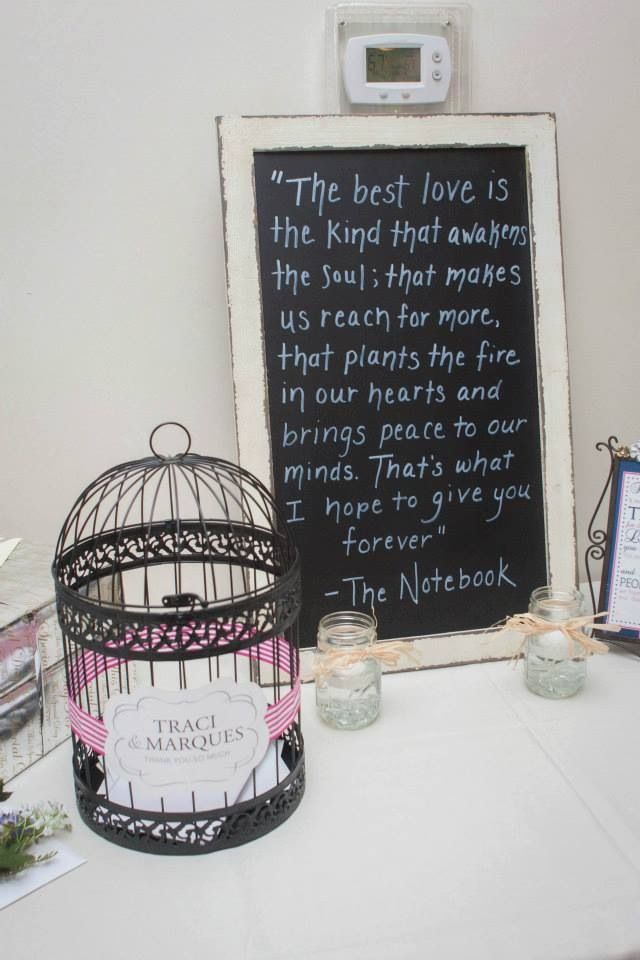 "The best love is
the kind that awakens
the soul; that makes
us reach for more,
that plants the fire
in our hearts and
brings peace to our
minds. That's what
I hope to give you
forever"
-The Notebook
TRACI
& MARQUES
THANK YOU SO MUCH